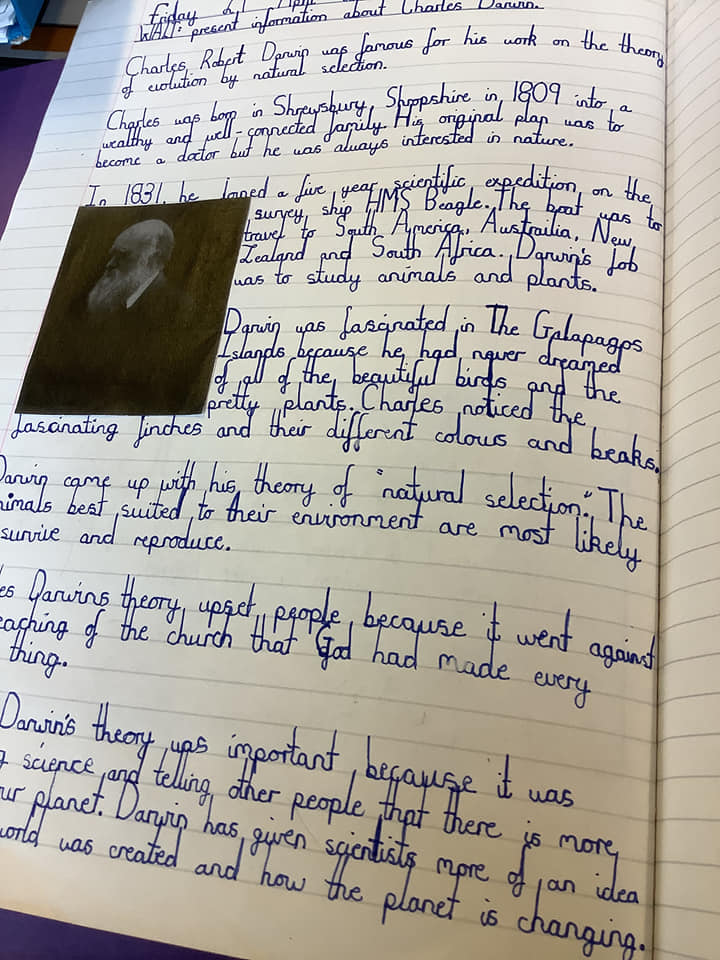 Friday
WALT: present information about Charles Darwin.
Charles Robert Darwin was famous for his work on the theory
of evolution by natural selection.
Charles was born in Shrewsbury, Shropshire in 1809 into a
wealthy and well-connected family. His original plan was to
become a doctor but he was always interested in nature.
In 1831, he joined a five year scientific expedition on the
survey ship HMS Beagle. The boat was to
travel to South America, Austrailia, New
Zealand and South Africa. Darwin's Job
was to study animals and plants.
Darwin was fascinated in The Galapagos
Islands because he had never dreamed
of all of the beautiful birds and the
pretty plants. Charles noticed the
fascinating finches and their different colours and beaks.
Darwin came up with his theory of "natural selection." The
nimals best suited to their environment are most likely
survive and reproduce.
es Darwins theory upset people because it went against
eaching of the church that God had made every
thing.
Darwin's theory was important because it was
science and telling other people that there is more
ur planet. Darwin has given scientists more of an idea
world was created and how the planet is changing.